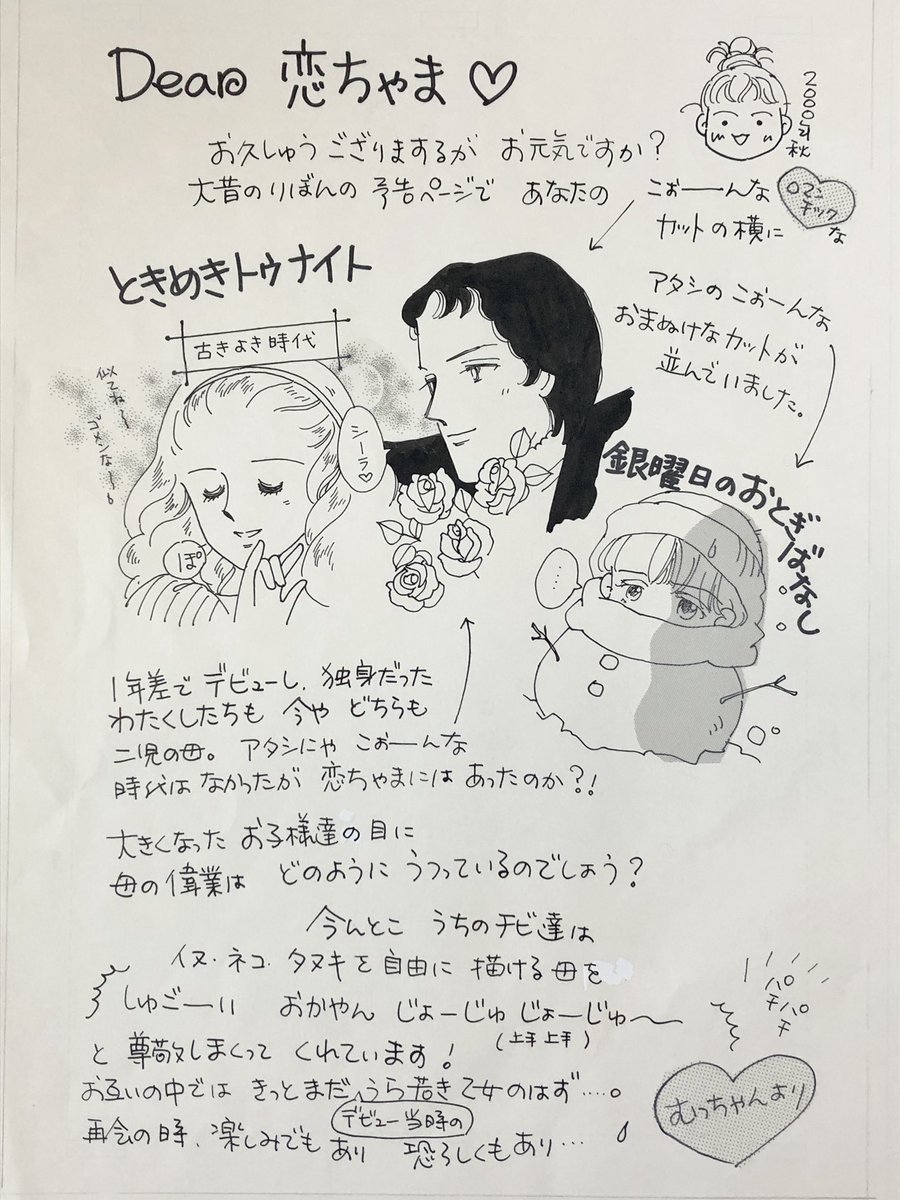 Dear 恋ちゃま♡
2000年秋
お久しゅうございまするが お元気ですか?
大昔のりぼんの 予告ページで あなたの こぉーーんな ロマンチックな
カットの横に
アタシの こぉーんな
おまぬけなカットが
並んでいました。
ときめきトゥナイト
古きよき時代
似てね〜〜
ゴメンな〜〜。
シーラ♡
ぽ
銀曜日のおとぎばなし
・・・
1年差で デビューし、独身だった
わたくしたちも 今や どちらも
二児の母。アタシにゃ こぉーーんな
時代は なかったが 恋ちゃまには あったのか?!
大きくなった お子様達の目に
母の偉業は どのように うつっているのでしょう?
今んとこ うちのチビ達は
イヌ・ネコ・タヌキを自由に 描ける母を
しゅごーーい おかやん じょーじゅ じょーじゅ〜
(上手上手)
と 尊敬しまくって くれています!
パチパチパチ
お互いの中では きっとまだ デビュー当時の うら若き乙女のはず・・・・。
再会の時、楽しみでも あり 恐ろしくもあり・・・
むっちゃんより